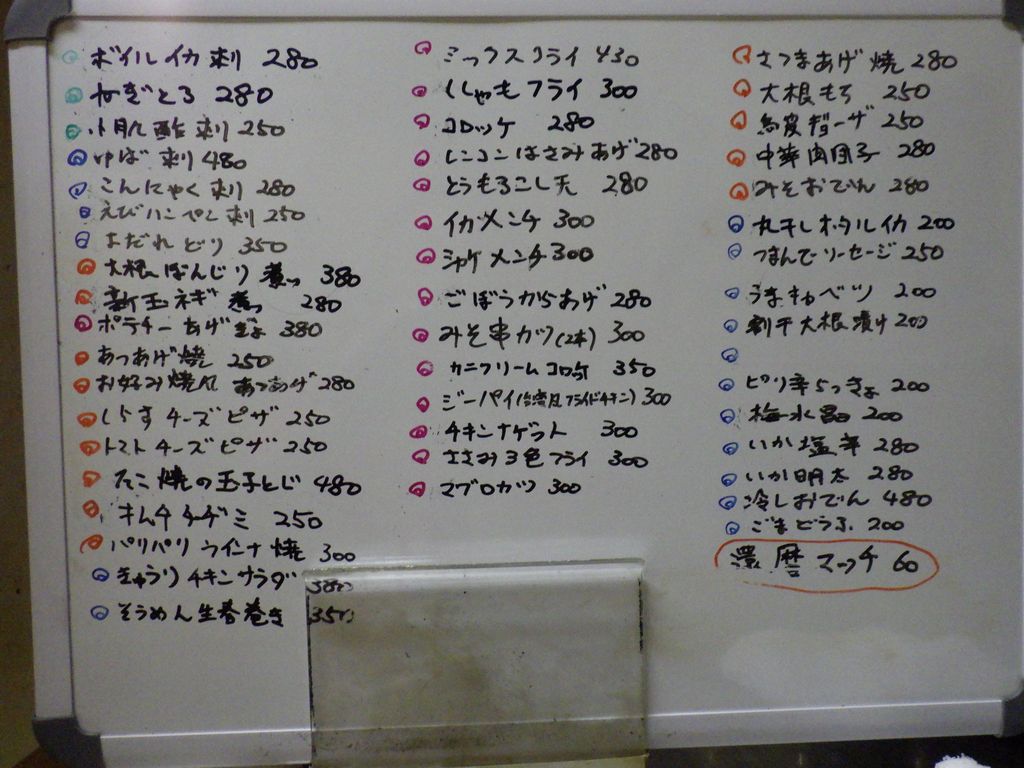 ボイルイカ刺 280
ねぎとろ 280
小肌酢刺 250
ゆば刺 480
こんにゃく刺 280
えびハンペン刺 250
よだれどり 350
大根ぼんじり煮っ 380
新玉ネギ煮っ 280
ポテチーあげぎょ 380
あつあげ焼 250
お好み焼風あつあげ 280
しらすチーズピザ 250
トマトチーズピザ 250
たこ焼の玉子とじ 480
キムチチヂミ 250
パリパリウインナ焼 300
きゅうりチキンサラダ 380
そうめん生春巻き 350
ミックスフライ 430
ししゃもフライ 300
コロッケ 280
レンコンはさみあげ 280
とうもろこし天 280
イカメンチ 300
シャケメンチ 300
ごぼうからあげ 280
みそ串カツ(2本) 300
カニクリームコロッケ 350
ジーパイ(台湾風フライドチキン) 300
チキンナゲット 300
ささみ3色フライ 300
マグロカツ 300
さつまあげ焼 280
大根もち 250
鳥皮ギョーザ 250
中華肉団子 280
みそおでん 280
丸干しホタルイカ 200
つまんでソーセージ 250
うまキャベツ 200
割干大根漬け 200
ピリ辛らっきょ 200
梅水晶 200
いか塩辛 280
いか明太 280
冷しおでん 480
ごまどうふ 200
還暦マッチ 60